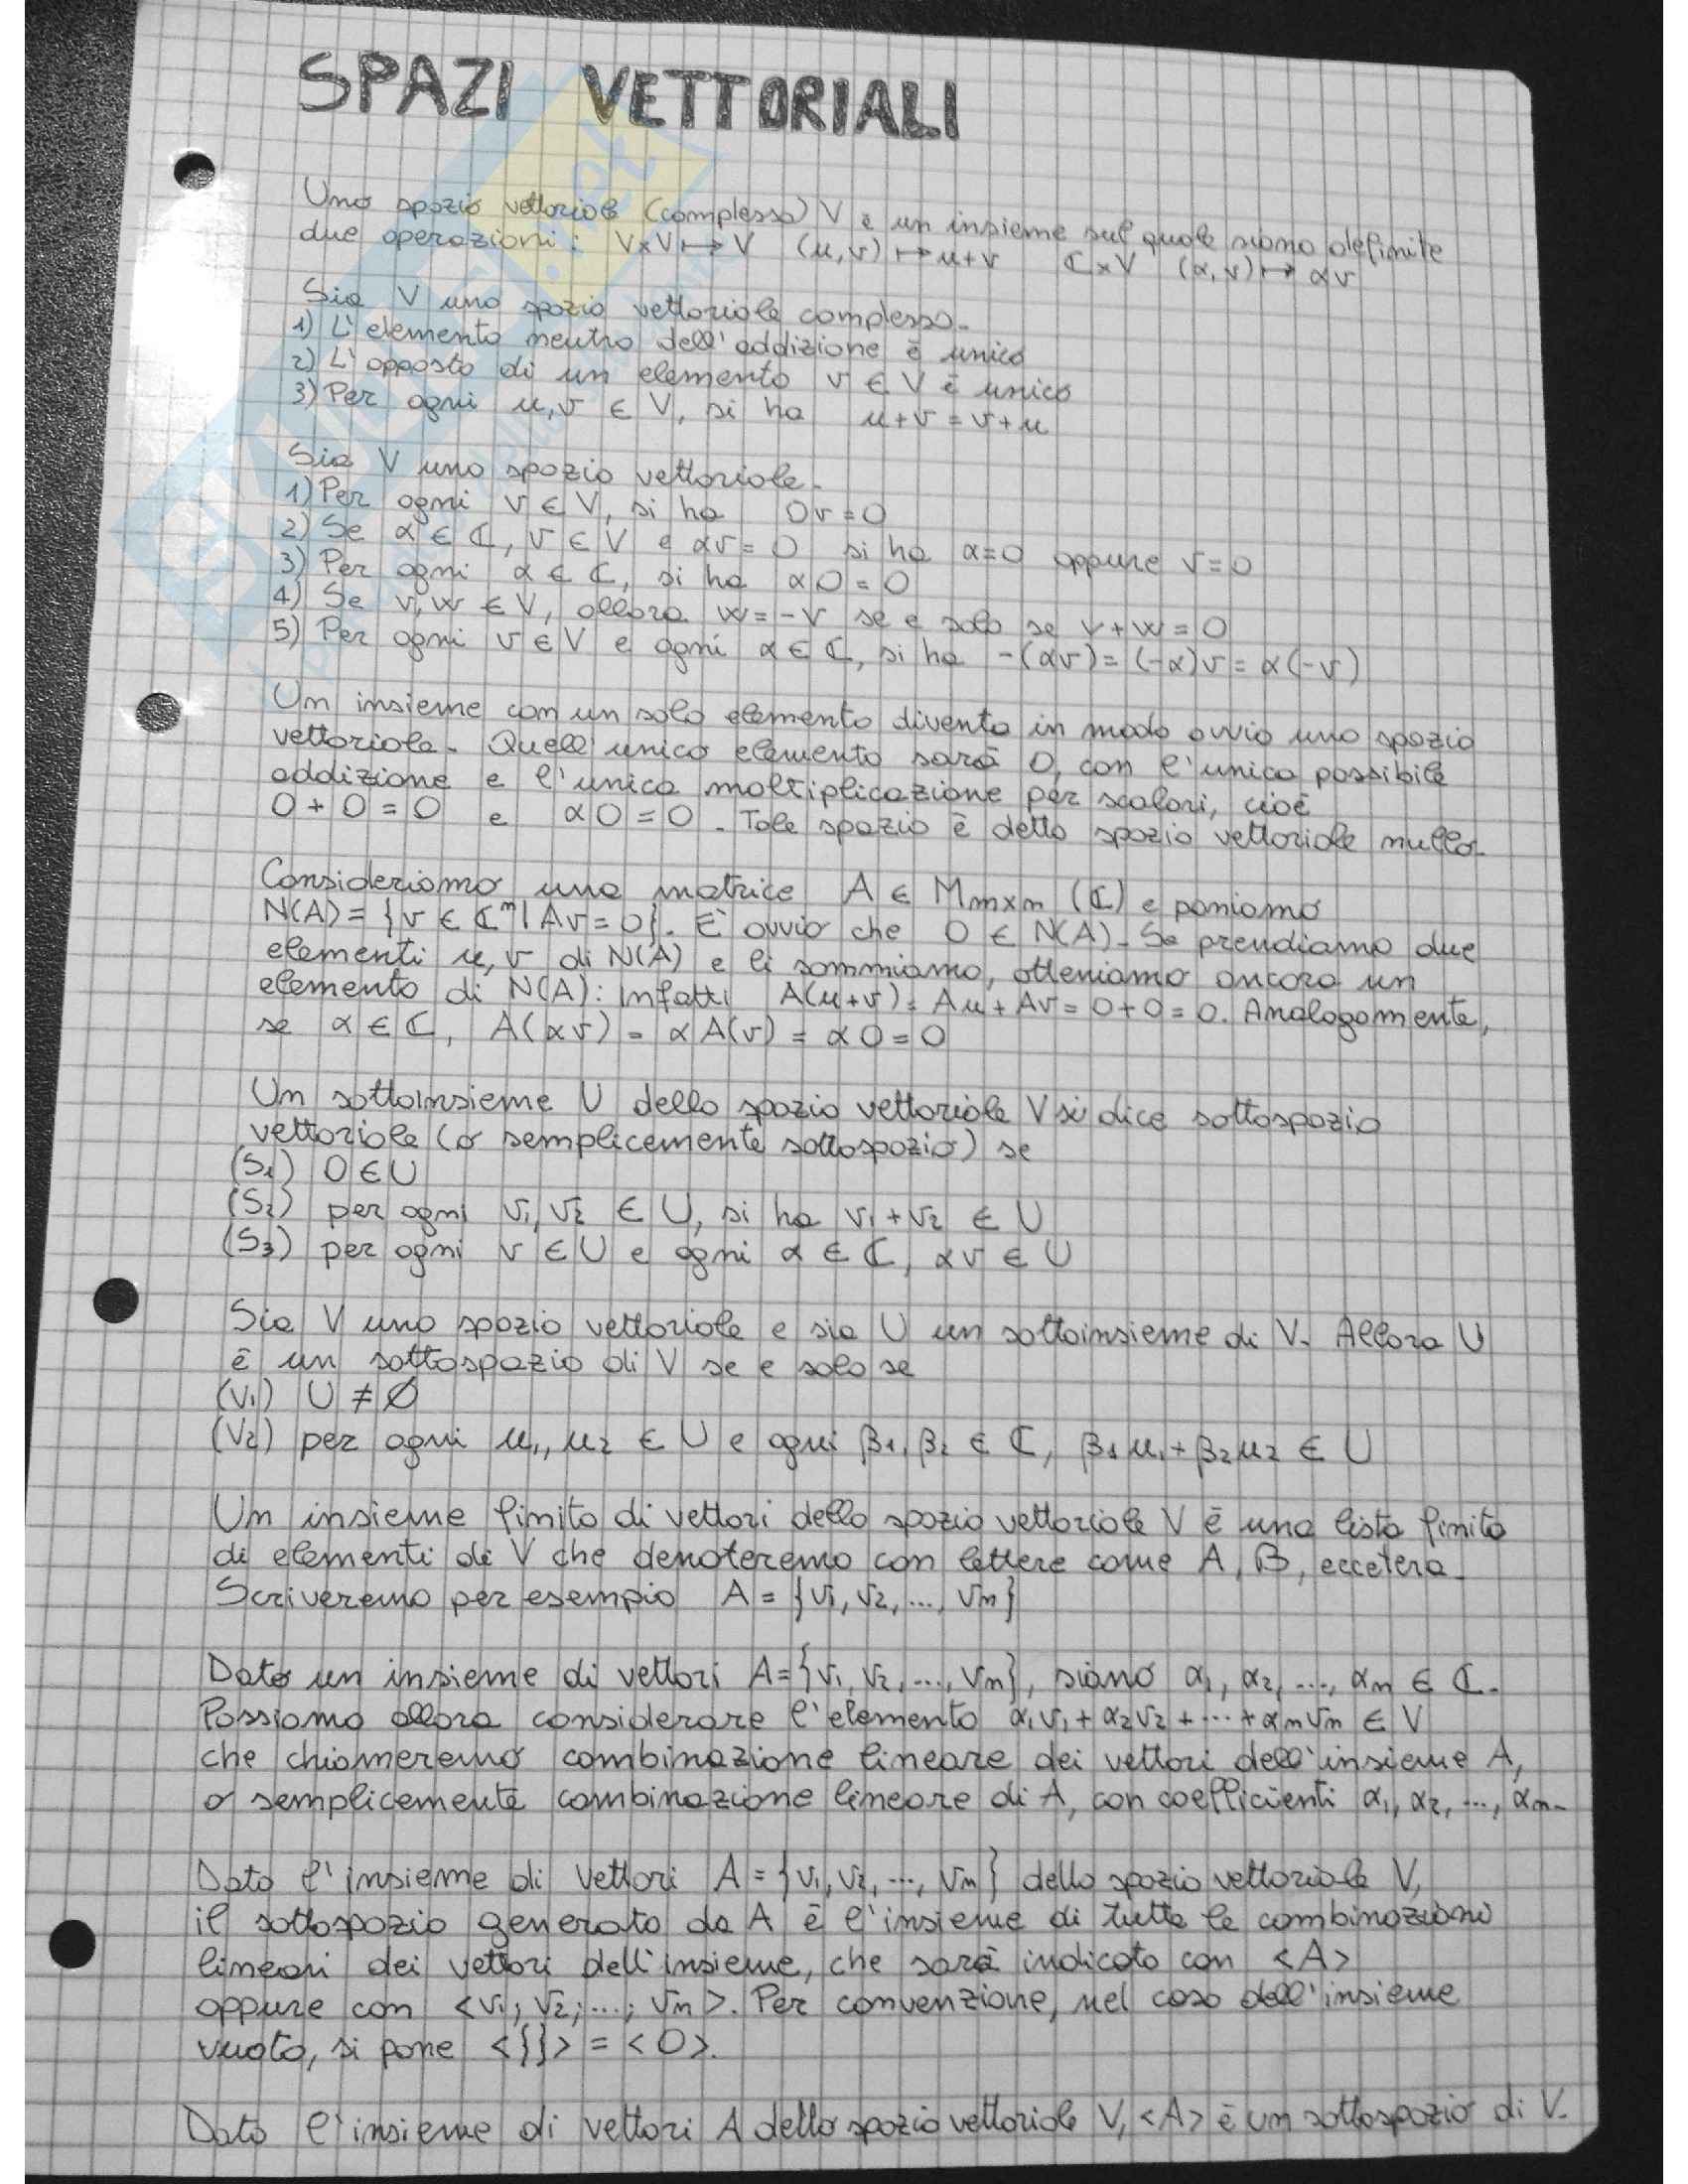 SPAZI VETTORIALI
Uno spazio vettoriale (complesso) V è un insieme sul quale siano definite
due operazioni: V×V ↦ V (u,v) ↦ u+v ℂ×V (α,v) ↦ αv
Sia V uno spazio vettoriale complesso.
1) L'elemento neutro dell'addizione è unico
2) L'opposto di un elemento v ∈ V è unico
3) Per ogni u,v ∈ V, si ha u+v = v+u
Sia V uno spazio vettoriale.
1) Per ogni v ∈ V, si ha 0v = 0
2) Se α ∈ ℂ, v ∈ V e αv = 0 si ha α=0 oppure v=0
3) Per ogni α ∈ ℂ, si ha α0 = 0
4) Se v,w ∈ V, allora w = -v se e solo se v+w = 0
5) Per ogni v ∈ V e ogni α ∈ ℂ, si ha -(αv) = (-α)v = α(-v)
Un insieme con un solo elemento diventa in modo ovvio uno spazio
vettoriale. Quell'unico elemento sarà 0, con l'unica possibile
addizione e l'unica moltiplicazione per scalari, cioè
0+0=0 e α0=0. Tale spazio è detto spazio vettoriale nullo.
Consideriamo una matrice A ∈ Mmxn (ℂ) e poniamo
N(A) = {v ∈ ℂⁿ | Av = 0}. E' ovvio che 0 ∈ N(A). Se prendiamo due
elementi u,v di N(A) e li sommiamo, otteniamo ancora un
elemento di N(A): Infatti A(u+v) = Au + Av = 0+0 = 0. Analogamente,
se α ∈ ℂ, A(αv) = αA(v) = α0 = 0
Un sottoinsieme U dello spazio vettoriale V si dice sottospazio
vettoriale (o semplicemente sottospazio) se
(S1) 0 ∈ U
(S2) per ogni v₁, v₂ ∈ U, si ha v₁+v₂ ∈ U
(S3) per ogni v ∈ U e ogni α ∈ ℂ, αv ∈ U
Sia V uno spazio vettoriale e sia U un sottoinsieme di V. Allora U
è un sottospazio di V se e solo se
(V1) U ≠ Ø
(V2) per ogni u₁, u₂ ∈ U e ogni β₁, β₂ ∈ ℂ, β₁u₁ + β₂u₂ ∈ U
Un insieme finito di vettori dello spazio vettoriale V è una lista finita
di elementi di V che denoteremo con lettere come A, B, eccetera.
Scriveremo per esempio A = {v₁, v₂, ..., vn}
Dato un insieme di vettori A = {v₁, v₂, ..., vn}, siano α₁, α₂, ..., αn ∈ ℂ.
Possiamo allora considerare l'elemento α₁v₁ + α₂v₂ + ... + αnvn ∈ V
che chiameremo combinazione lineare dei vettori dell'insieme A,
o semplicemente combinazione lineare di A, con coefficienti α₁, α₂, ..., αn.
Dato l'insieme di vettori A = {v₁, v₂, ..., vn} dello spazio vettoriale V,
il sottospazio generato da A è l'insieme di tutte le combinazioni
lineari dei vettori dell'insieme, che sarà indicato con <A>
oppure con <v₁; v₂; ...; vn>. Per convenzione, nel caso dell'insieme
vuoto, si pone <{}> = <0>.
Dato l'insieme di vettori A dello spazio vettoriale V, <A> è un sottospazio di V.